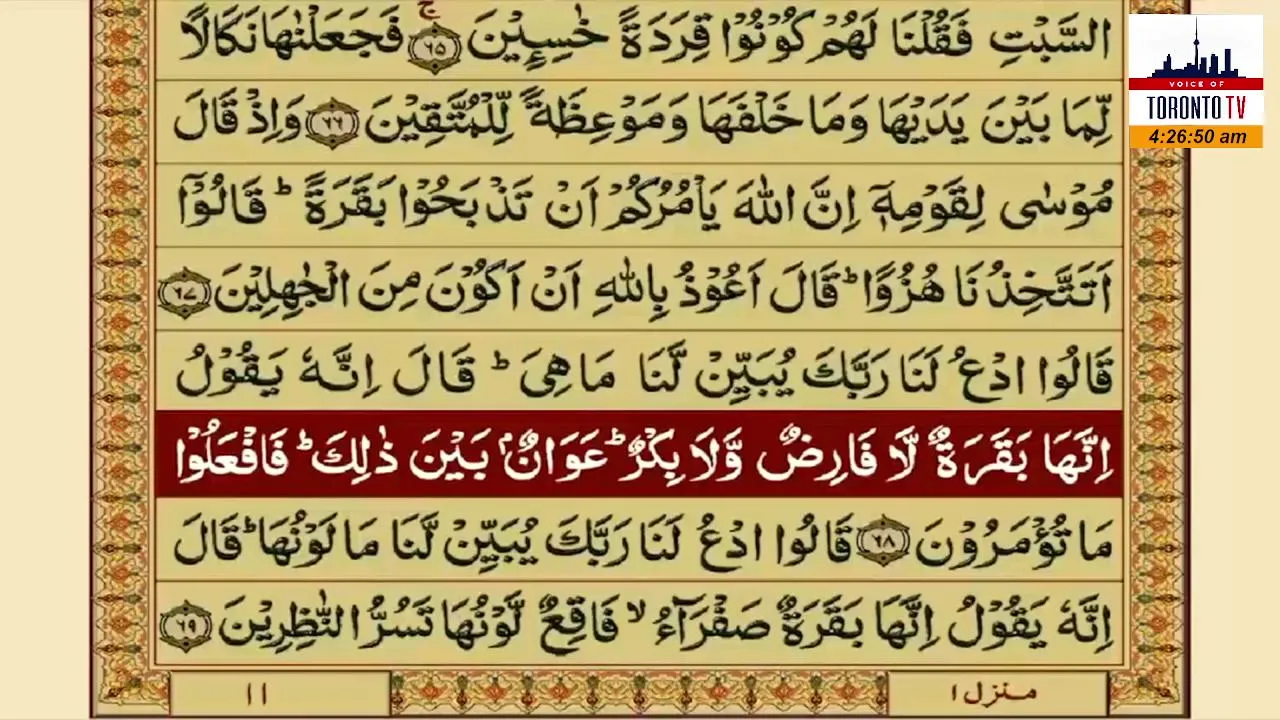 السَّبۡتِ فَقُلۡنَا لَهُمۡ كُوۡنُوۡا قِرَدَةً خٰسِـِٕيۡنَ ۚ‏ ﴿۶۵﴾ فَجَعَلۡنٰهَا نَكَالًا
لِّمَا بَيۡنَ يَدَيۡهَا وَمَا خَلۡفَهَا وَمَوۡعِظَةً لِّلۡمُتَّقِيۡنَ ﴿۶۶﴾ وَاِذۡ قَالَ
مُوۡسٰى لِقَوۡمِهٖۤ اِنَّ اللّٰهَ يَاۡمُرُكُمۡ اَنۡ تَذۡبَحُوۡا بَقَرَةً ؕ قَالُوۡٓا
اَتَتَّخِذُنَا هُزُوًا ؕ قَالَ اَعُوۡذُ بِاللّٰهِ اَنۡ اَكُوۡنَ مِنَ الۡجٰهِلِيۡنَ ﴿۶۷﴾
قَالُوا ادۡعُ لَنَا رَبَّكَ يُبَيِّنۡ لَّنَا مَا هِىَ ؕ قَالَ اِنَّهٗ يَقُوۡلُ
اِنَّهَا بَقَرَةٌ لَّا فَارِضٌ وَّلَا بِكۡرٌ ؕ عَوَانٌۢ بَيۡنَ ذٰلِكَ ؕ فَافۡعَلُوۡا
مَا تُؤۡمَرُوۡنَ ﴿۶۸﴾ قَالُوا ادۡعُ لَنَا رَبَّكَ يُبَيِّنۡ لَّنَا مَا لَوۡنُهَا ؕ قَالَ
اِنَّهٗ يَقُوۡلُ اِنَّهَا بَقَرَةٌ صَفۡرَآءُ ۙ فَاقِعٌ لَّوۡنُهَا تَسُرُّ النّٰظِرِيۡنَ ﴿۶۹﴾
منزل ۱
۱۱
VOICE OF
TORONTO TV
4:26:50 am